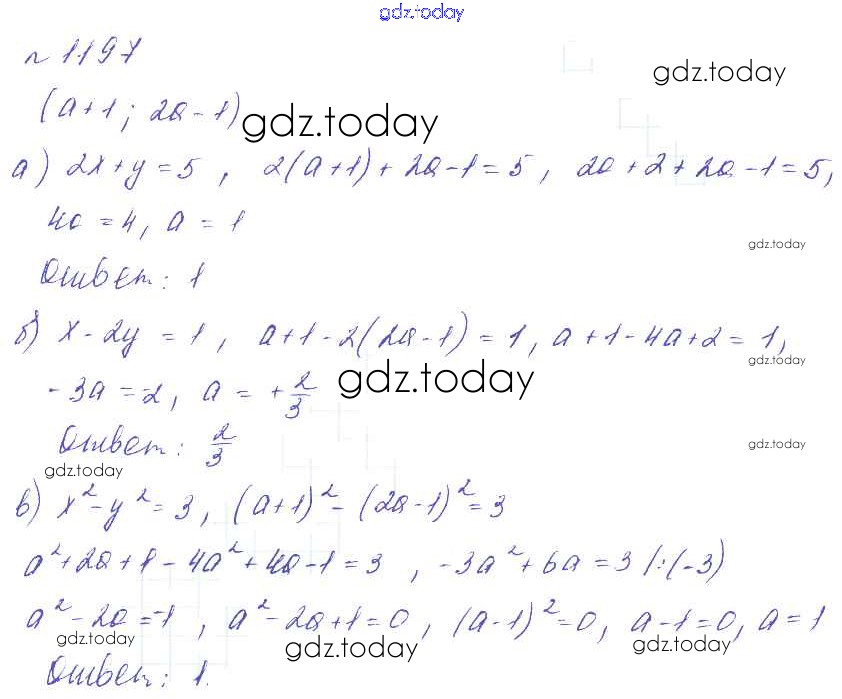 gdz.today
№ 1197
gdz.today
(a+1; 2a-1) gdz.today
а) 2x+y=5, 2(a+1)+2a-1=5, 2a+2+2a-1=5,
4a=4, a=1
gdz.today
Ответ: 1
б) x-2y=1, a+1-2(2a-1)=1, a+1-4a+2=1,
gdz.today
-3a=-2, a=+2/3 gdz.today
Ответ: 2/3
gdz.today
gdz.today
в) x²-y²=3, (a+1)²-(2a-1)²=3
a²+2a+1-4a²+4a-1=3, -3a²+6a=3 /:(-3)
a²-2a=-1, a²-2a+1=0, (a-1)²=0, a-1=0, a=1
gdz.today gdz.today gdz.today
Ответ: 1.